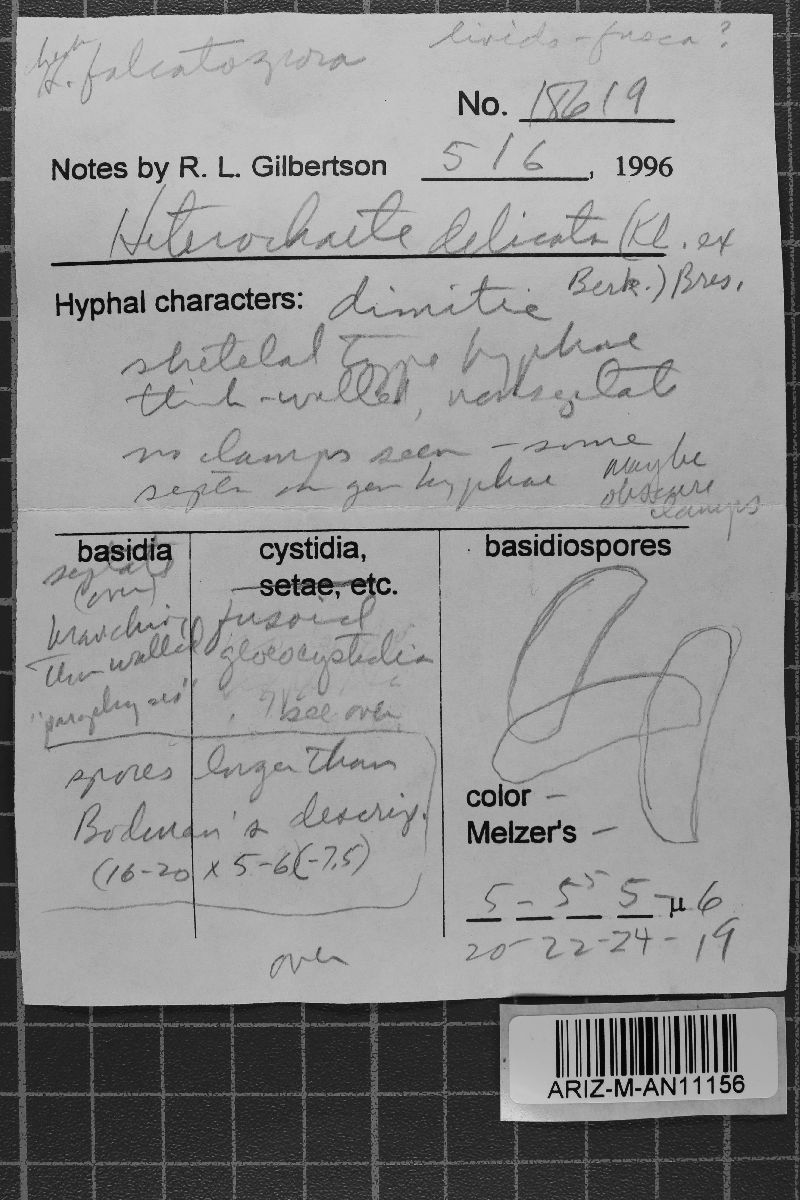 H. falcatospora livido-fusca?
No. 18619
Notes by R. L. Gilbertson 5 16, 1996
Heterochaete delicata (Kl. ex
Berk.) Bres.
Hyphal characters: dimitic
skeletal type hyphae
thick-walled, nonseptate
no clamps seen - some
septa in gen hyphae maybe
obscure
clamps
basidia
septate
(over)
branching
thin walled
"paraphyses"
cystidia,
setae, etc.
fusoid
gloeocystidia
? see over
basidiospores
spores larger than
Bodman's descrip.
(16-20 x 5-6(-7.5)
color –
Melzer's –
5 - 5 5 5 - µ 6
20 - 22 - 24 - 19
over
ARIZ-M-AN11156